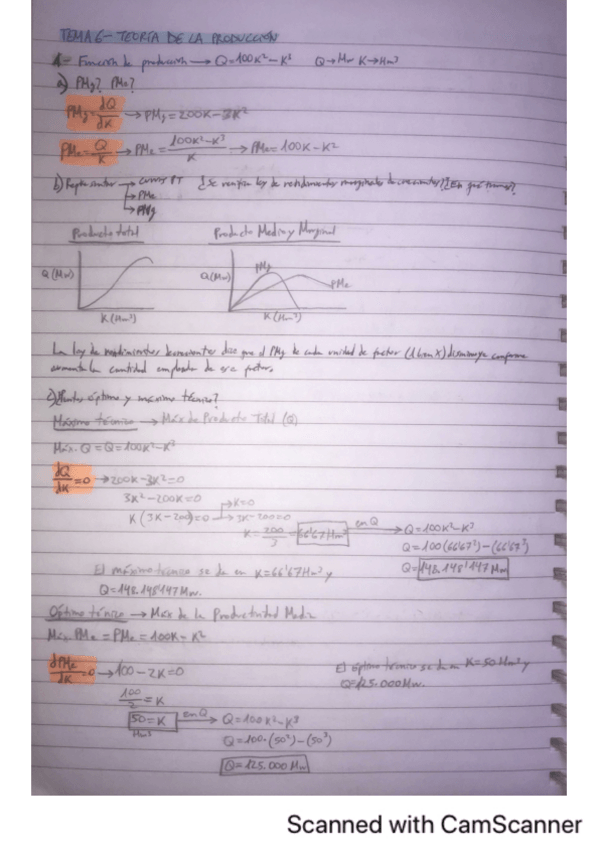 TEMA 6 - TEORÍA DE LA PRODUCCIÓN
1- Función de producción → Q=100K²-K³ Q→Mw K→Hm³
a) PMg? PMe?
PMg=dQ/dK → PMg=200K-3K²
PMe=Q/K → PMe=100K²-K³/K → PMe=100K-K²
b) Representar → curvas PT ¿Se cumple ley de rendimientos marginales decrecientes? ¿En qué tramo?
→PMe
→PMg
Producto total Producto Medio y Marginal
Q(Mw) Q(Mw) PMg PMe
K(Hm³) K(Hm³)
La ley de rendimientos decrecientes dice que el PMg de cada unidad de factor disminuye conforme
aumenta la cantidad empleada de ese factor.
c) ¿Puntos óptimo y máximo técnico?
Máximo técnico → Máx de Producto Total (Q)
Máx. Q = Q=100K²-K³
dQ/dK=0 → 200K-3K²=0
3K²-200K=0
K(3K-200)=0 →K=0 →3K-200=0
K=200/3=66'67Hm³ en Q → Q=100K²-K³
Q=100(66'67²)-(66'67³)
Q=148.148'147Mw
El máximo técnico se da en K=66'67Hm³ y
Q=148.148'147Mw.
Óptimo técnico → Máx de la Productividad Media
Máx. PMe = PMe = 100K-K²
dPMe/dK=0 → 100-2K=0
100/2=K
50=K en Q → Q=100K²-K³
Hm³
Q=100·(50²)-(50³)
Q=125.000Mw
El óptimo técnico se da en K=50Hm³ y
Q=125.000Mw.
Scanned with CamScanner